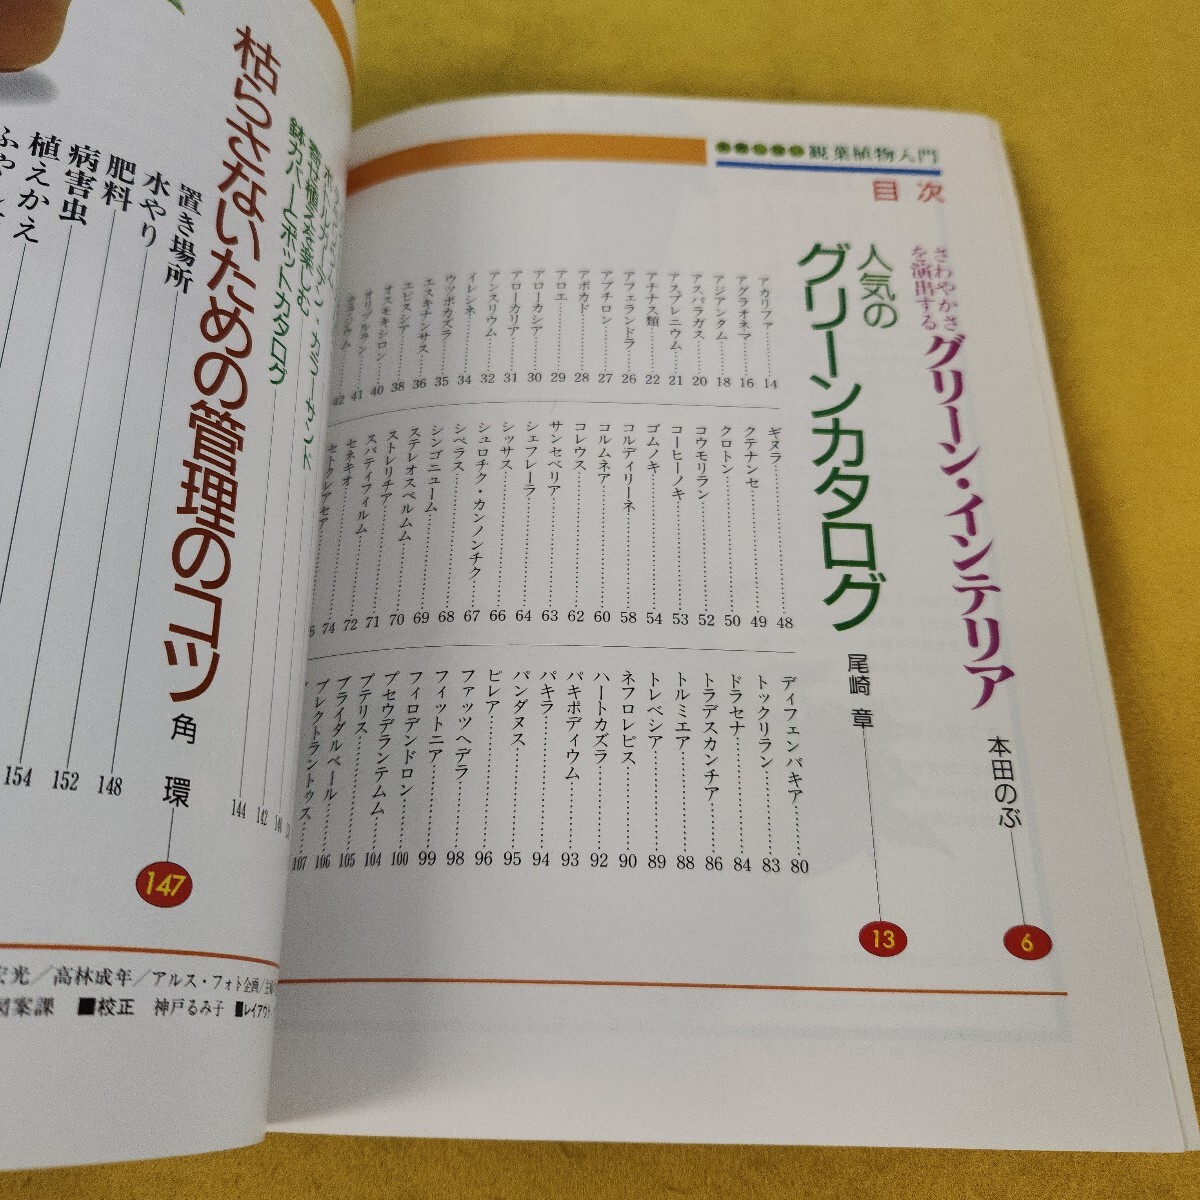 観葉植物入門
目次
さわやかさを演出する
グリーン・インテリア
本田のぶ
6
人気の
グリーンカタログ
尾崎 章
13
アカリファ 14
アグラオネマ 16
アジアンタム 18
アスパラガス 20
アスプレニウム 21
アナナス類 22
アフェランドラ 26
アブチロン 27
アボカド 28
アロエ 29
アローカシア 30
アローカリア 31
アンスリウム 32
イレシネ 34
ウツボカズラ 35
エスキナンサス 36
エピスシア 38
オスモキシロン 40
オリヅルラン 41
42
ギヌラ 48
クテナンセ 49
クロトン 50
コウモリラン 52
コーヒーノキ 53
ゴムノキ 54
コルディリーネ 58
コルムネア 60
コレウス 62
サンセベリア 63
シェフレーラ 64
シッサス 66
シュロチク・カンノンチク 67
シペラス 68
シンゴニューム 69
ステレオスペルムム 70
ストレリチア 71
スパティフィルム 72
セネキオ 74
セトクレアセア
ディフェンバキア 80
トックリラン 83
ドラセナ 84
トラデスカンチア 86
トルミエア 88
トレベシア 89
ネフロレピス 90
ハートカズラ 92
パキポディウム 93
パキラ 94
パンダヌス 95
ピレア 96
ファッツヘデラ 98
フィットニア 99
フィロデンドロン 100
プセウデランテムム 104
プテリス 105
ブライダルベール 106
プレクトラントゥス 107
寄せ植えを楽しむ
142
鉢カバーとポットカタログ
144
枯らさないための管理のコツ
角 環
147
置き場所
水やり
148
肥料
病害虫
152
植えかえ
154
光／高林成年／アルス・フォト企画／
図案課 ■校正 神戸るみ子 ■レイアウト